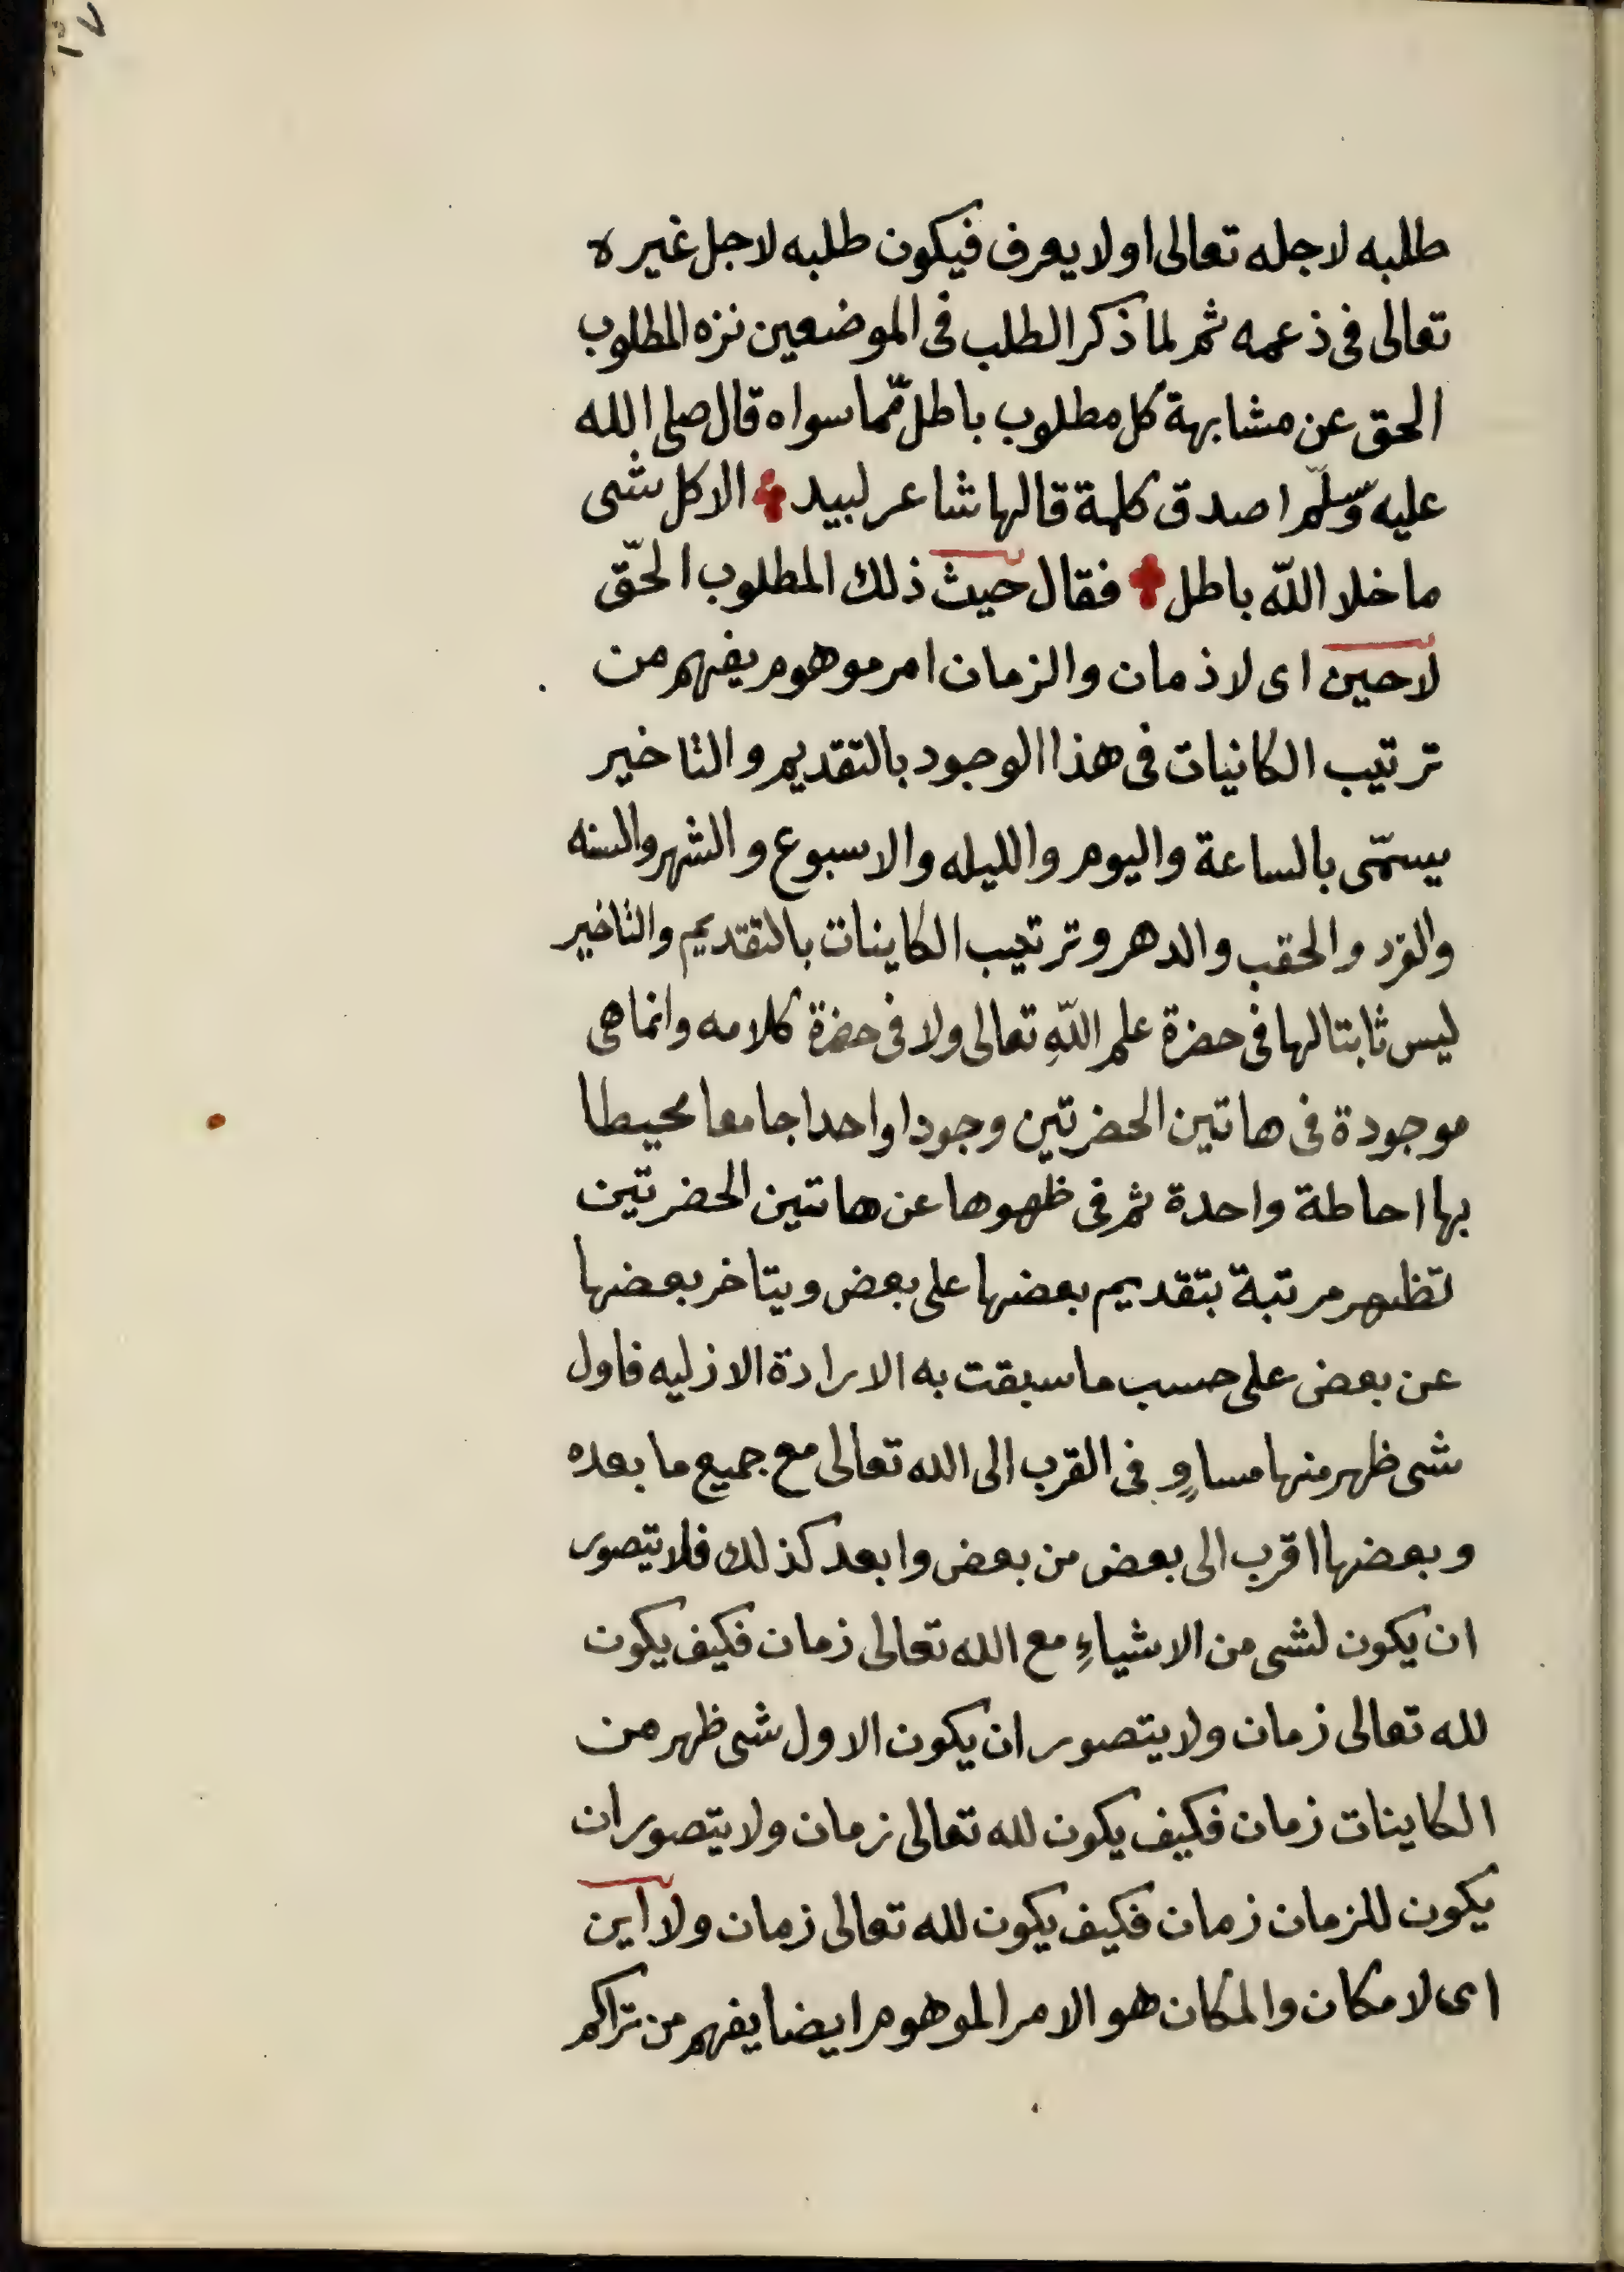 طلبه لاجله تعالى او لا يعرف فيكون طلبه لاجل غيره
تعالى فى ذعمه ثم لما ذكر الطلب فى الموضعين نزه المطلوب
الحق عن مشابهة كل مطلوب باطل مّما سواه قال صلى الله
عليه وسلّم اصدق كلمة قالها شاعر لبيد الا كل شى
ما خلا اللّه باطل فقال حيث ذلك المطلوب الحّق
لا حين اى لا ذمان والزمان امر موهوم يفهم من
ترتيب الكانيات فى هذا الوجود بالتقديم والتاخير
يسمّى بالساعة واليوم والليله والاسبوع والشهر والسنه
والقرد والحقب والدهر وترتيب الكاينات بالتقديم والتاخير
ليس ثابتا لها فى حضرة علم اللّهِ تعالى ولا فى حضرة كلامه وانما هى
موجودة فى هاتين الحضرتين وجودا واحدا جامعا محيطا
بها احاطة واحدة ثم فى ظهوها عن هاتين الحضرتين
تظهر مرتبة بتقديم بعضها على بعض ويتاخر بعضها
عن بعض على حسب ما سبقت به الارادة الازليه فاول
شى ظهر منها مساوٍ فى القرب الى الله تعالى مع جميع ما بعده
وبعضها اقرب الى بعض من بعض وابعد كذلك فلا يتصور
ان يكون لشى من الاشياءِ مع الله تعالى زمان فكيف يكون
لله تعالى زمان ولا يتصور ان يكون الاول شى ظهر من
الكاينات زمان فكيف يكون لله تعالى زمان ولا يتصور ان
يكون للزمان زمان فكيف يكون لله تعالى زمان ولا اين
اى لا مكان والمكان هو الامر الموهوم ايضا يفهم من تراكم